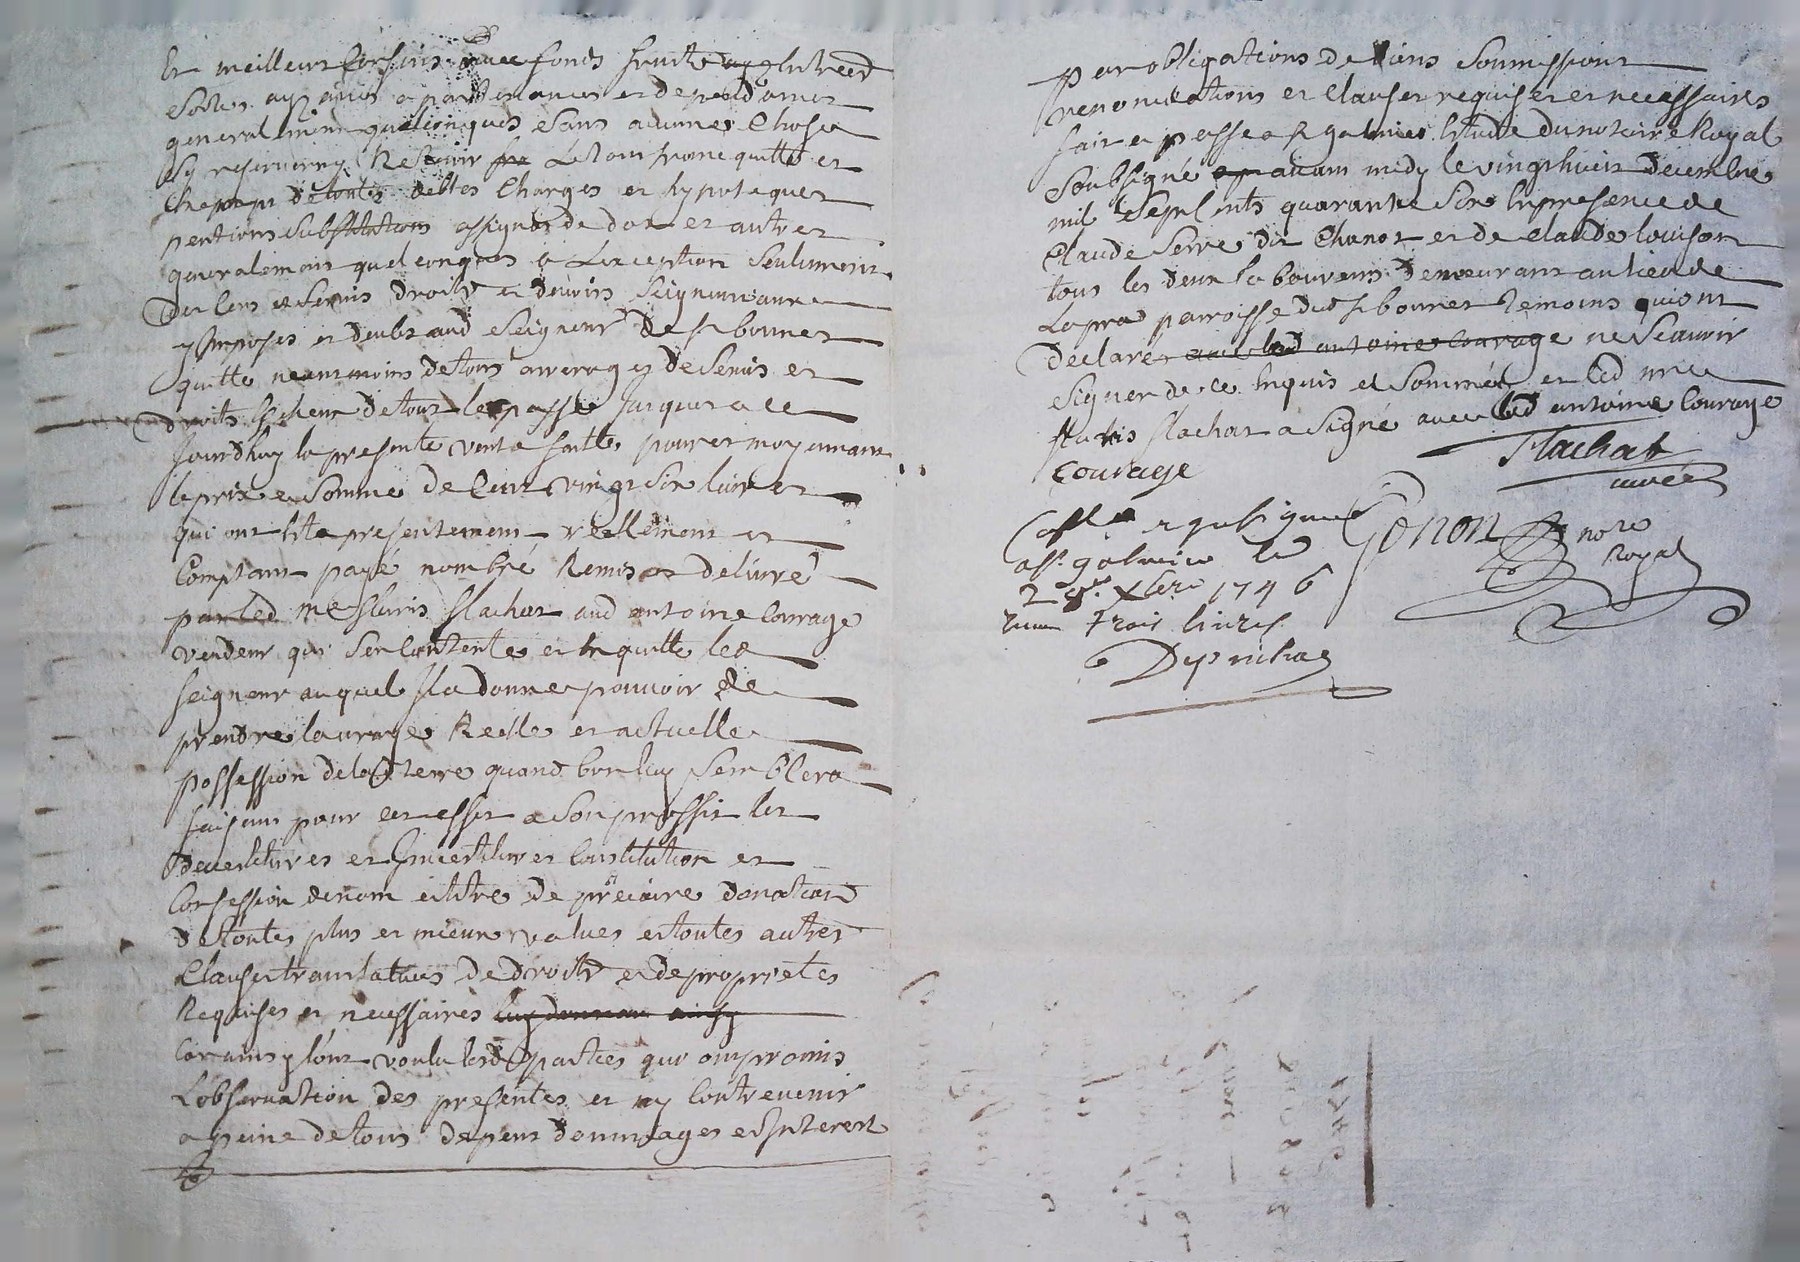 Et meilleurs Confins avec fonds fruits
generalement quelconques sans aucunes Choses
sy reserver ny Retenir Le tout franc quitte et
de toutes debtes Charges et hypoteques
pentions Substitutions assignas de dot et autres
generalement quelconques a Lexception Seulement
Des Cens et Servis droits et devoirs Seigneuriaux
ymposes et deubs aud Seigneur de St bonnet
quitte neantmoins de tous arrerages de Servis et
droits de tout le passé Jusques a ce
Jourdhuy la presente vente faitte pour et moyennant
le prix et Somme de Cent vingt Six livres
qui ont Eté presentement réellement et
Comptant payé nombré Remis et delivré
par led me fleuris flachat aud antoine Courage
vendeur qui Sen Contente et En quitte led
auquel Il a donne pouvoir de
prendre Reelle et actuelle
possession de lad terre quand bon luy Semblera
faisant pour cet effet a Son proffit les
Devestitures et Investitures Constitution et
Confession de nom et titre de precaire donation
de toutes plus et mieux values et toutes autres
Clauses translatives de droits et de proprietes
Requises et necessaires
Car ainsy lont voulu lesd parties qui ont promis
Lobservation des presentes et ny Contrevenir
a peine de tous depens dommages et Interest
Par obligations de biens Soumissions
renonciations et Clauses requises et necessaires
fait et passé a St galmier Etude du notaire Royal
Soubsigné avant midy le vingt huit decembre
mil Sept Cents quarante Six En presence de
Claude Serve dit Chanot et de Claude louison
tous les deux laboureurs demeurant au lieu de
parroisse dud St bonnet Temoins qui ont
declaré avec led antoine Courage ne Scavoir
Signer de ce Enquis et Sommés et led me
fleuris flachat a Signé avec led antoine Courage
Courage
Flachat
Gonon no.re
Royal
a St galmier le
28.e Xbre 1746
Trois livres